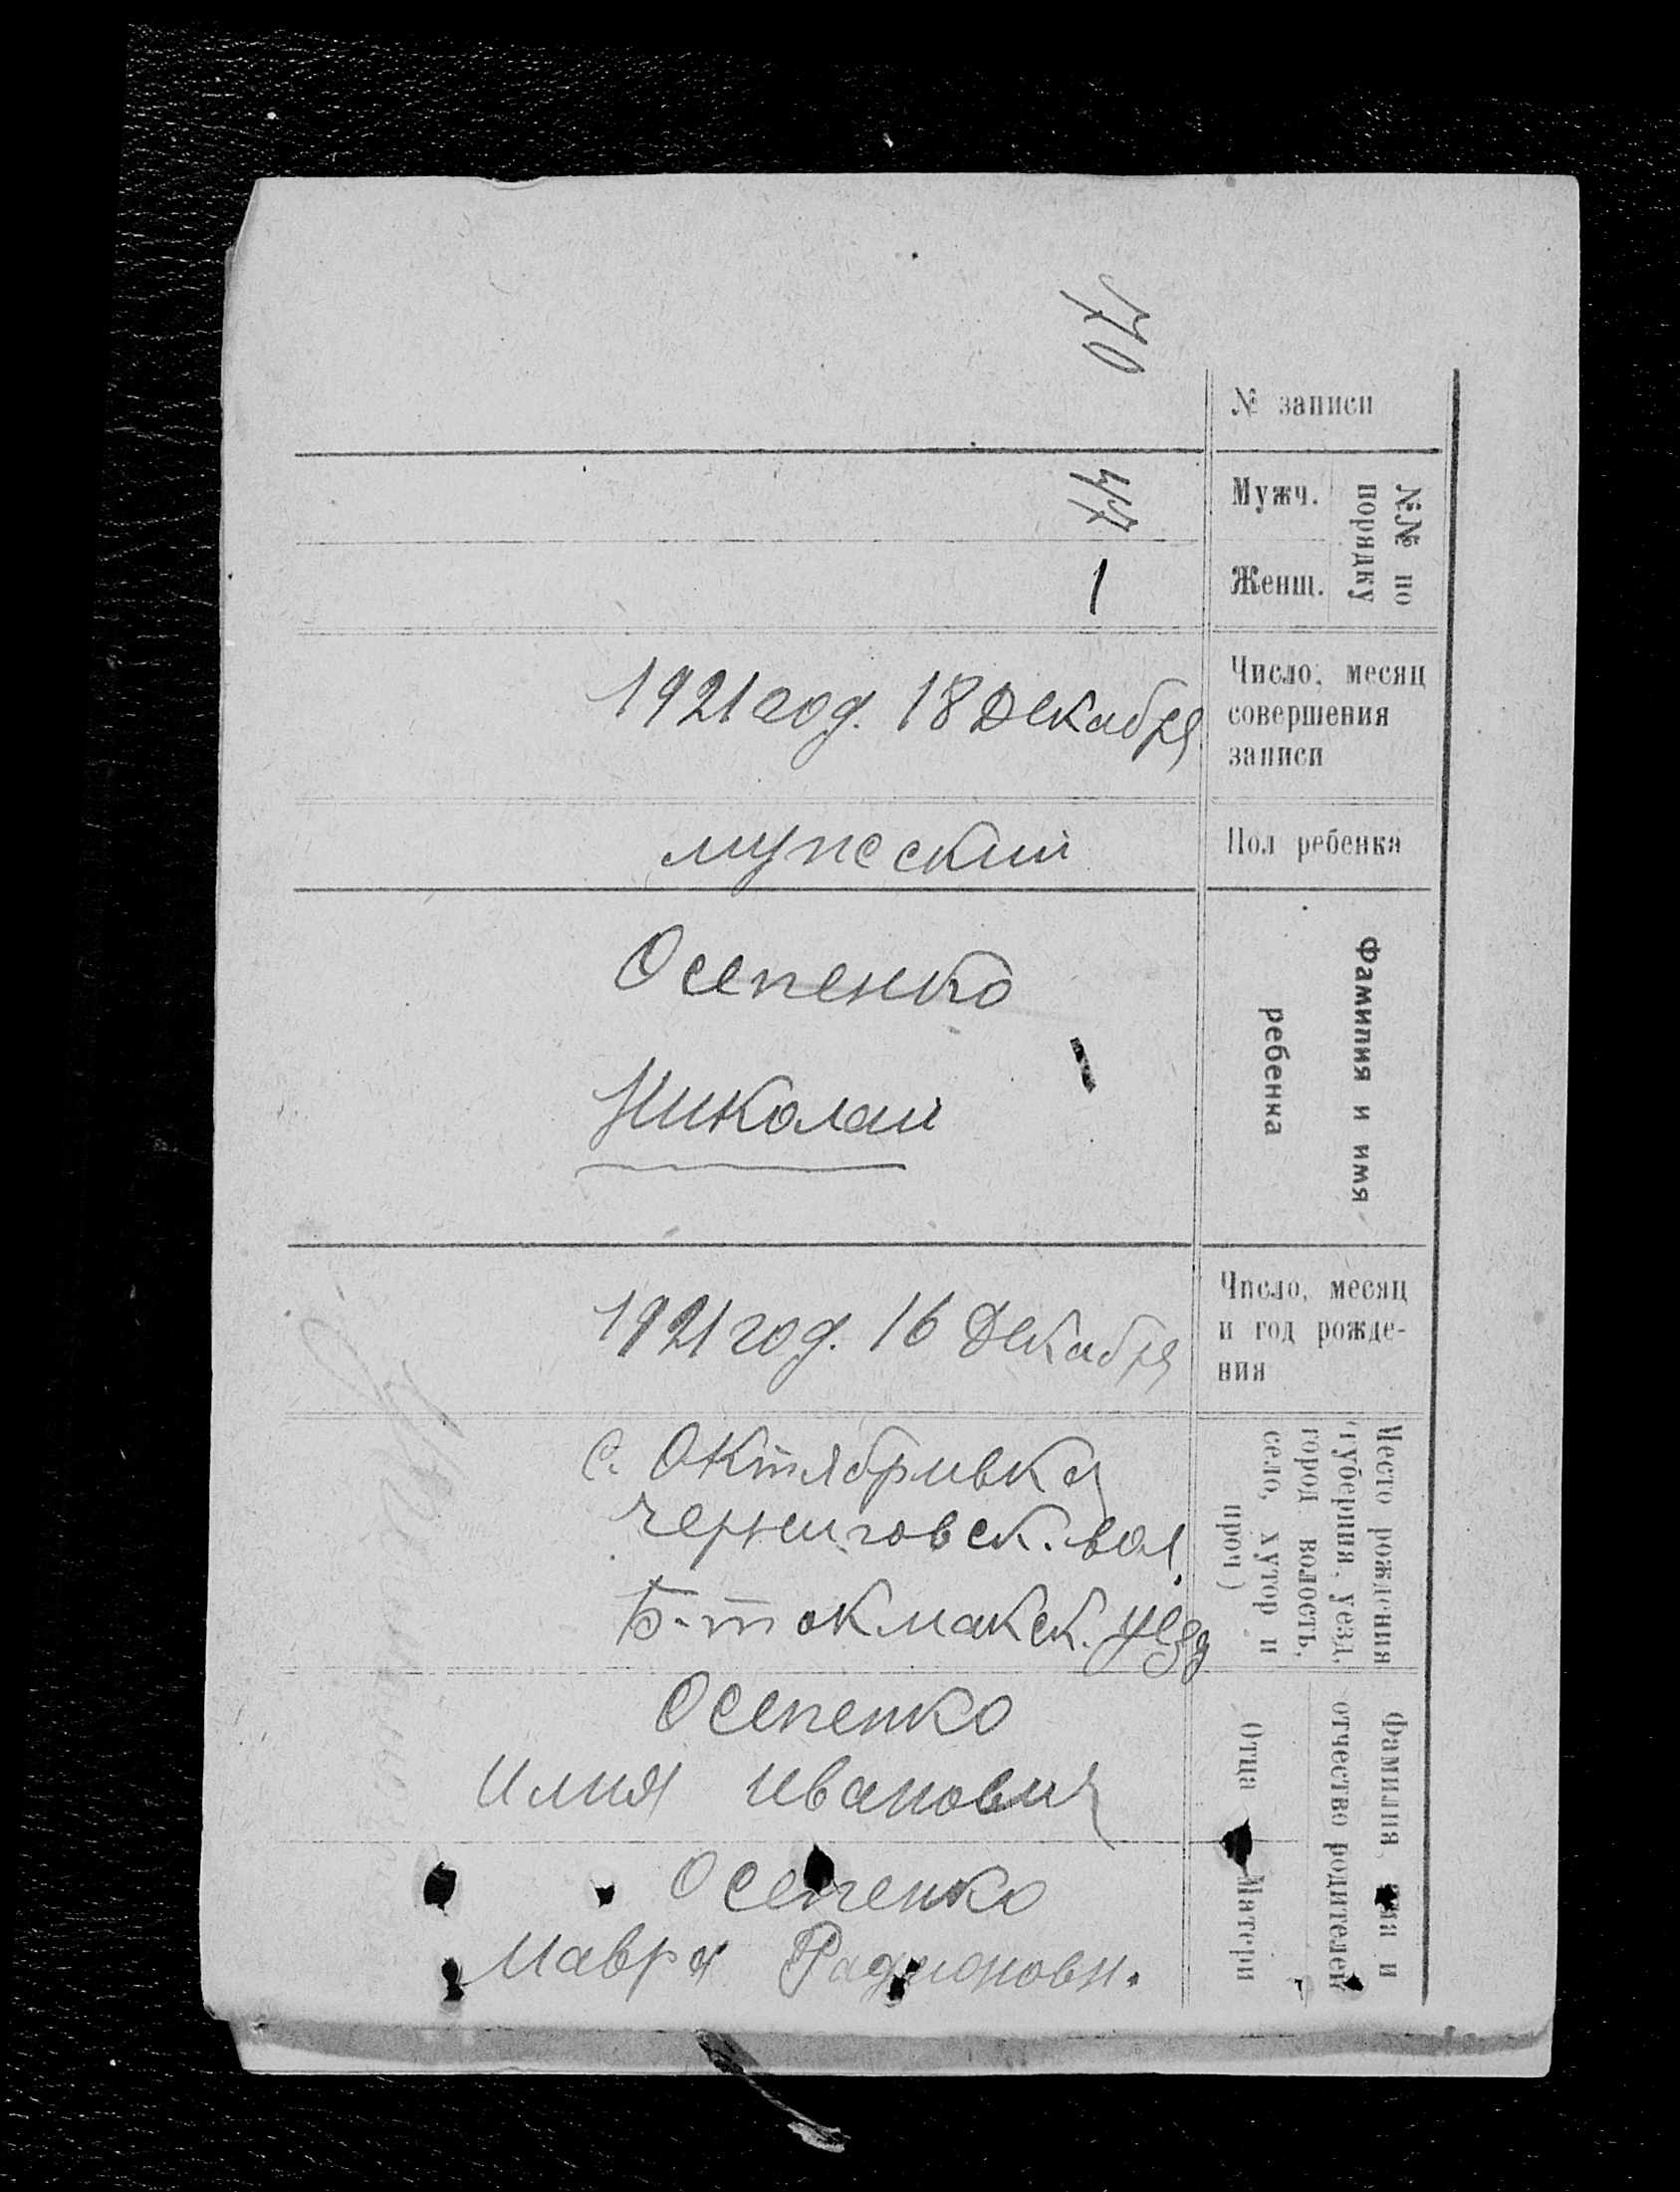 № записи
70
№№ по
порядку
Мужч.
47
Женщ.
Число, месяц
совершения
записи
1921 год. 18 Декабря
Пол ребенка
мужеский
Фамилия и имя
ребенка
Осепенко
Николай
Число, месяц
и год рожде-
ния
1921 год. 16 Декабря
Место рождения
(губерния, уезд,
город волость,
село, хутор и
проч)
с. Октябривка
черниговск. вол.
Б-токмакск. уезд
Фамилия, имя и
отчество родителей
Отца
Осепенко
Илия Иванович
Матери
Осепенко
Мавра Радионовн.